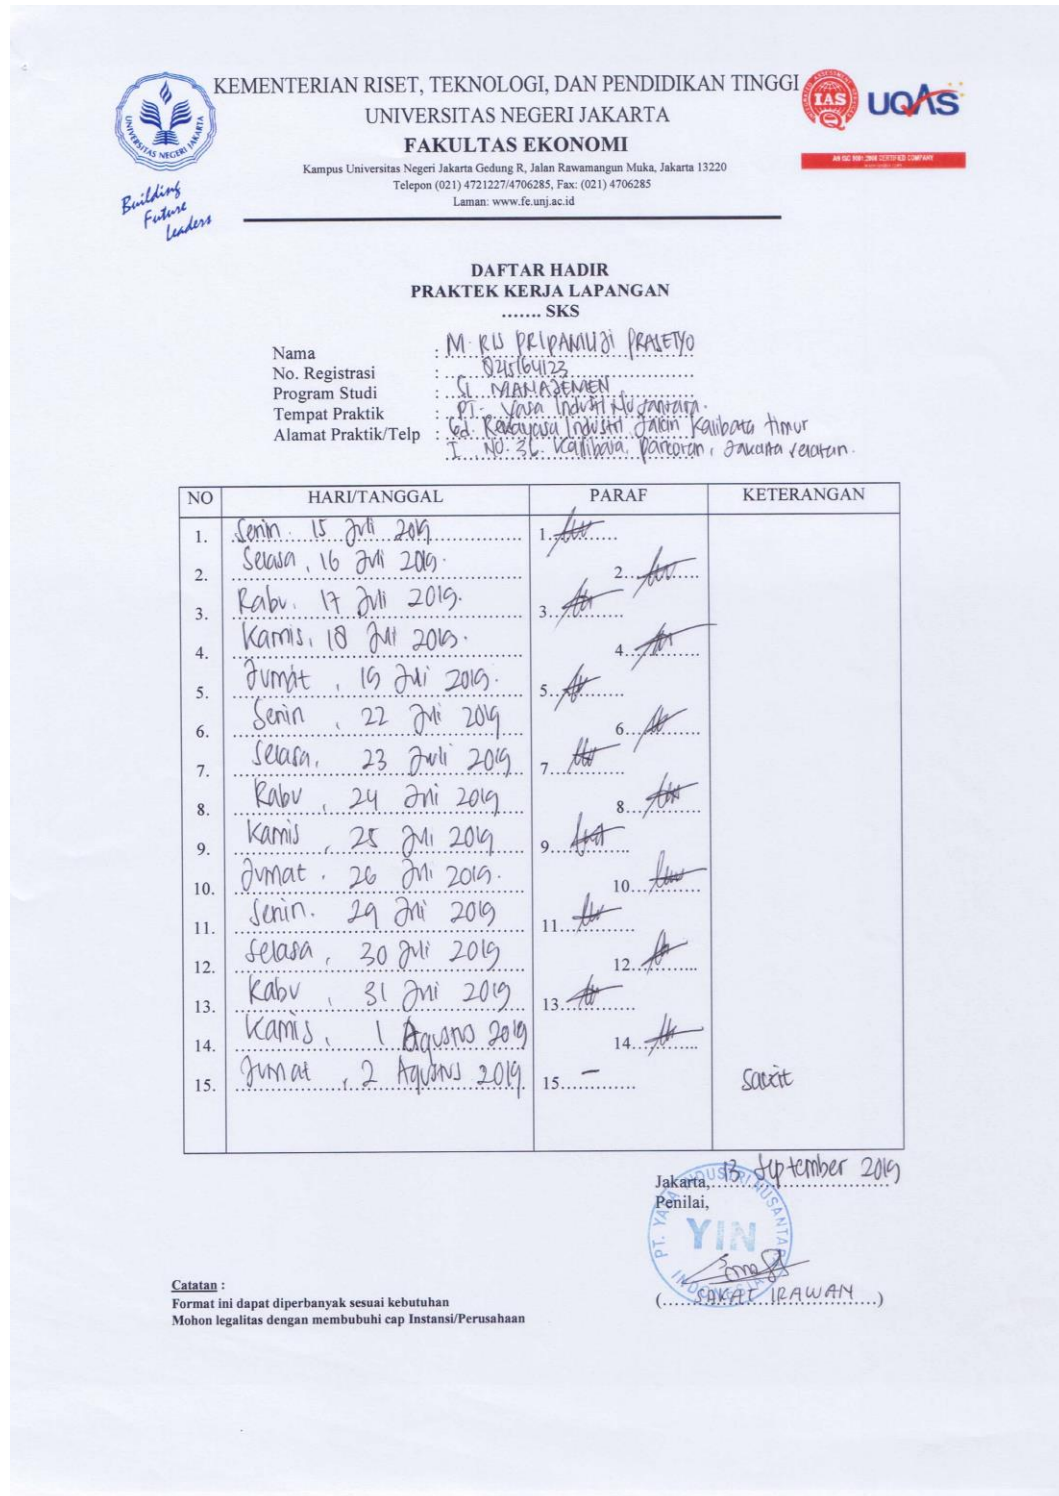 KEMENTERIAN RISET, TEKNOLOGI, DAN PENDIDIKAN TINGGI
UNIVERSITAS NEGERI JAKARTA
FAKULTAS EKONOMI
Kampus Universitas Negeri Jakarta Gedung R, Jalan Rawamangun Muka, Jakarta 13220
Telepon (021) 4721227/4706285, Fax: (021) 4706285
Laman: www.fe.unj.ac.id
UNIVERSITAS NEGERI JAKARTA
Building
Future
Leaders
IAS
UQAS
AN ISO 9001:2008 CERTIFIED COMPANY
DAFTAR HADIR
PRAKTEK KERJA LAPANGAN
....... SKS
Nama : M. RIS PRIPAMUJI PRASETYO
No. Registrasi : 8215164123
Program Studi : S1 MANAJEMEN
Tempat Praktik : PT. Yasa Industri Nusantara.
Alamat Praktik/Telp : Gd. Rekayasa Industri Jalan Kalibata timur
I NO. 36. Kalibata, Pancoran, Jakarta selatan.
NO HARI/TANGGAL PARAF KETERANGAN
1. Senin. 15 Juli 2019 1.
2. Selasa, 16 Juli 2019. 2.
3. Rabu. 17 Juli 2019. 3.
4. Kamis, 18 Juli 2019. 4.
5. Jumat, 19 Juli 2019. 5.
6. Senin, 22 Juli 2019 6.
7. Selasa, 23 Juli 2019 7.
8. Rabu, 24 Juli 2019 8.
9. Kamis, 25 Juli 2019 9.
10. Jumat, 26 Juli 2019. 10.
11. Senin. 29 Juli 2019 11.
12. Selasa, 30 Juli 2019 12.
13. Rabu, 31 Juli 2019 13.
14. Kamis, 1 Agustus 2019 14.
15. Jumat, 2 Agustus 2019 15. - Sakit
Jakarta, 13 September 2019
Penilai,
PT. YASA INDUSTRI NUSANTARA
YIN
INDONESIA
(SAKAT IRAWAN)
Catatan :
Format ini dapat diperbanyak sesuai kebutuhan
Mohon legalitas dengan membubuhi cap Instansi/Perusahaan